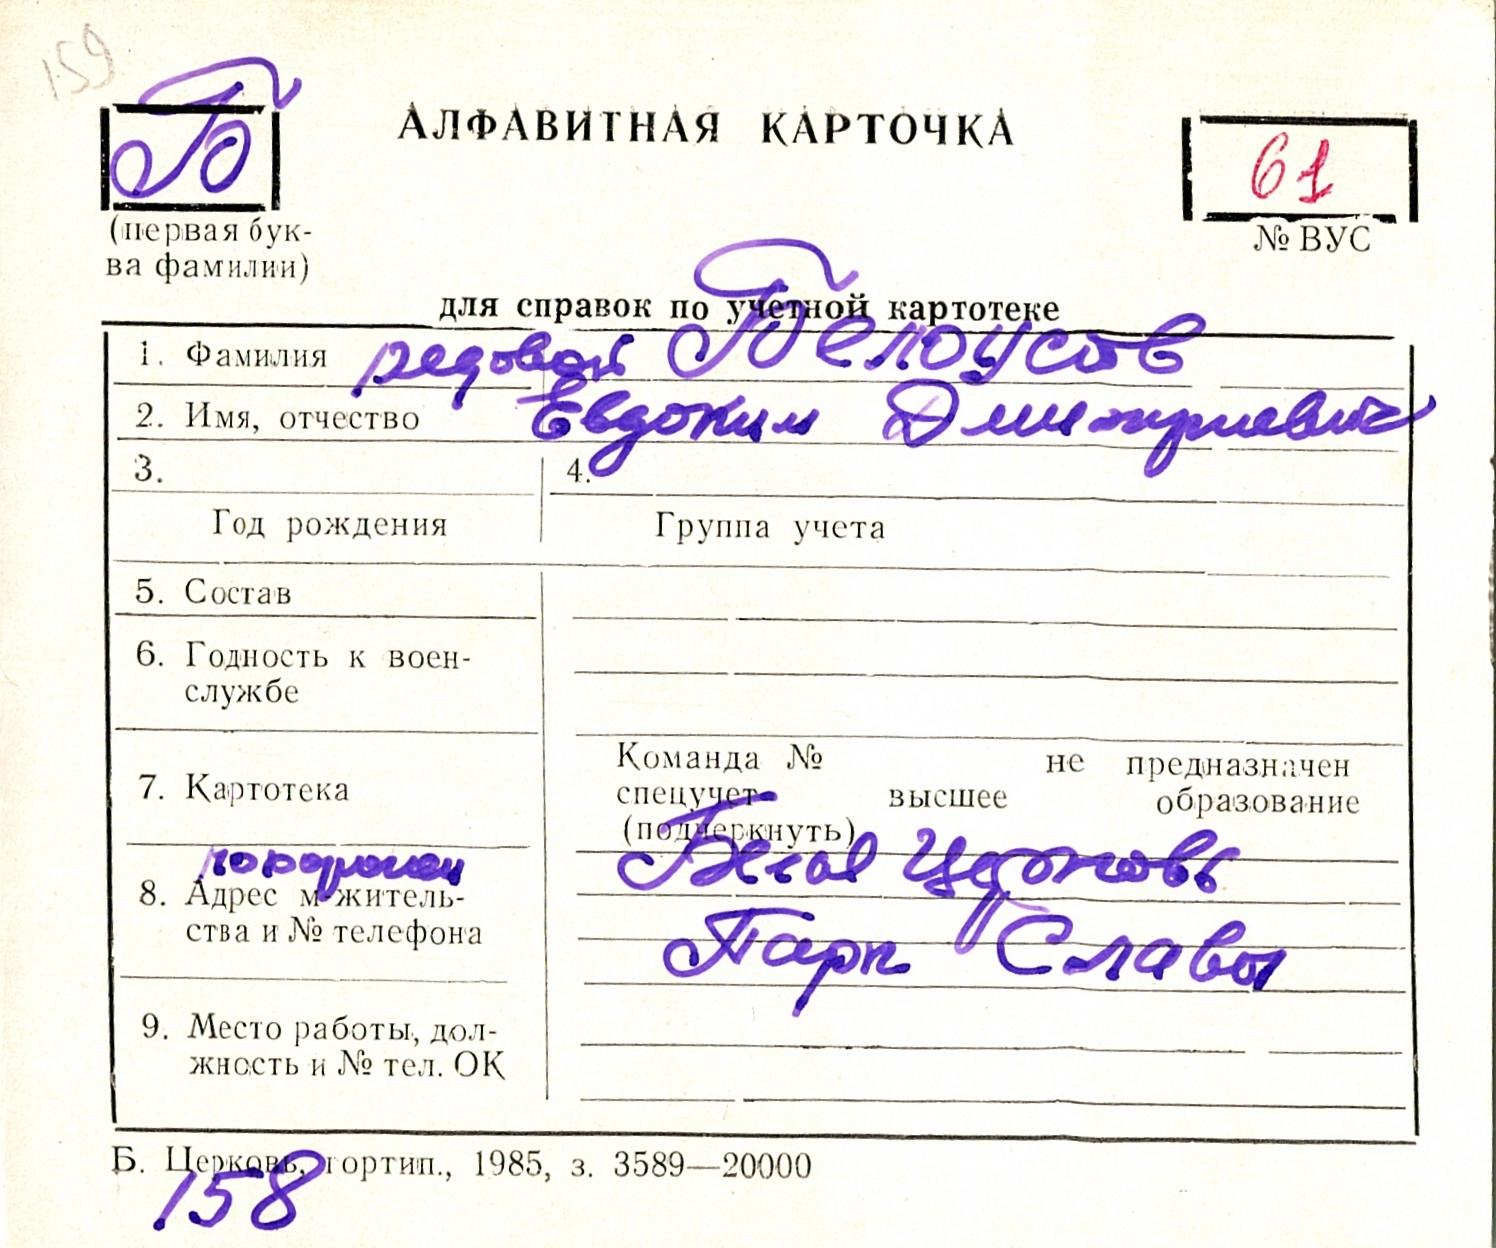 159
Б
АЛФАВИТНАЯ КАРТОЧКА
61
(первая бук-
ва фамилии)
№ ВУС
для справок по учетной картотеке
1. Фамилия рядовой Белоусов
2. Имя, отчество Евдоким Дмитриевич
3. 4.
Год рождения Группа учета
5. Состав
6. Годность к воен-
службе
7. Картотека
Команда № не предназначен
спецучет высшее образование
(подчеркнуть)
похоронен Белая Церковь
8. Адрес м житель-
ства и № телефона
Парк Славы
9. Место работы, дол-
жность и № тел. ОК
Б. Церковь, гортип., 1985, з. 3589—20000
158